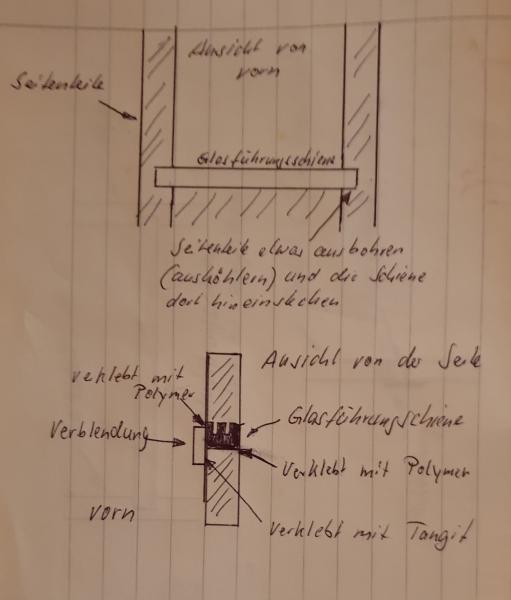 Ansicht von
vorn
Seitenteile
Glasführungsschiene
Seitenteile etwas ausbohren
(aushöhlern) und die Schiene
dort hineinstecken
Ansicht von der Seite
verklebt mit
Polymer
Glasführungsschiene
Verblendung
Verklebt mit Polymer
vorn
Verklebt mit Tangit